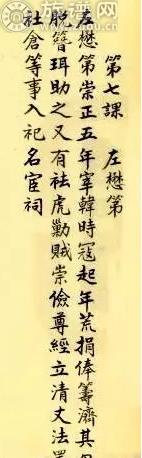 第七課　左懋第
左懋第崇正五年宰韓時寇起年荒捐俸籌濟其母
脫簪珥助之又有祛虎勦賊崇儉尊經立清丈法置
社倉等事入祀名宦祠
族譜网